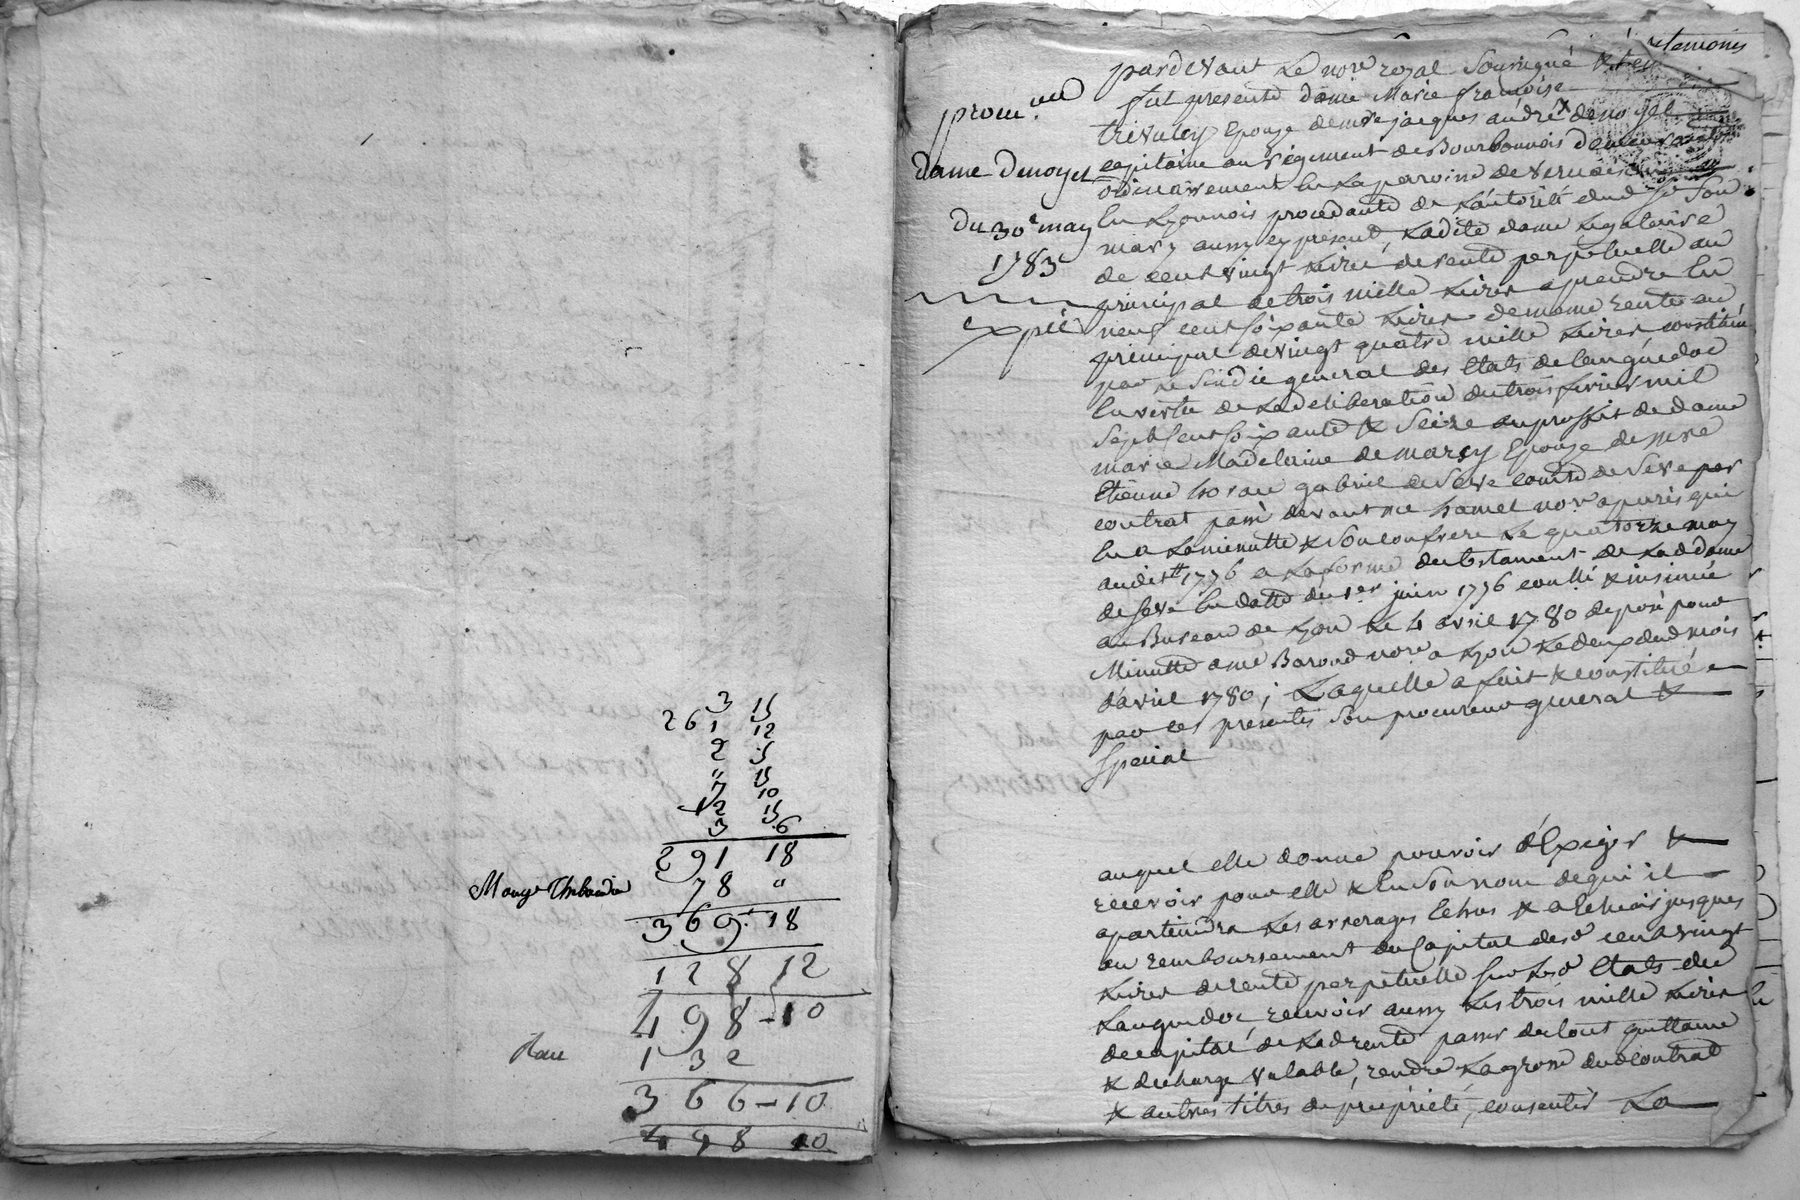 3 15
261 12
2 5
" 15
7 10
12 15
3 6
291 18
78 "
369 18
128 12
498-10
132
366-10
498 10
procu.on
dame Denoyel
du 30e may
1783
expié
pardevant Le nore royal Soussigné & temoins
fut presente dame Marie françoise
trevuley Epouse de mre jacques andré denoyel
capitaine au régiment de Bourbonnois demeurant
ordinairement en La parroisse de
En Lyonnois procedante de L'autorité dud Sr Son
mary aussy cy present, Ladite dame Legataire
de cent vingt Livres de rente perpetuelle au
principal de trois mille Livres a prendre En
neuf cent soixante Livres de meme rente au
principal de vingt quatre mille Livres constitué
par Le Sindic general des Etats de languedoc
En vertu de La deliberation du trois fevrier mil
Sept Cent soixante & Seize au proffit de dame
marie Madelaine de marsy Epouse de mre
Etienne gabriel de Seve comte de Seve par
contrat passé devant me hamel nore a paris qui
En a La minutte & Son confrere Le quatorze may
audit 1776 a La forme du testament de Lad dame
de Seve En datte du 1er juin 1776 contllé & insinué
au Bureau de Lyon Le 4 avril 1780 deposé pour
Minutte a me Baroud nore a Lyon Le deux dud mois
d'avril 1780; Laquelle a fait & constitué
par ces presentes Son procureur general &
Special
auquel elle donne pouvoir d'Exiger &
recevoir pour elle & En Son nom de qui il
apartiendra Les arrerages Echus & a Echoir jusques
au remboursement du Capital desd cent vingt
Livres de rente perpetuelle Sur Lesd Etats du
Languedoc recevoir aussy Les trois mille Livres
de capital de Lad rente passer du tout quittance
& decharge valable, rendre La grosse dud contrat
& autres titres de propriété, consentir La